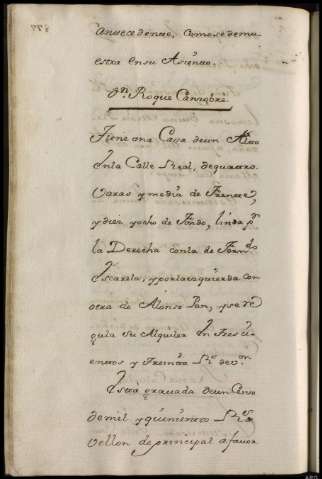 antecedente, como se demu
estra en su Asiento.
Dn. Roque Canrobre
Tiene una Casa de un Alto
en la Calle Real, de quatro
Varas y media de Frente,
y diez y ocho de Fondo, linda pr.
la Derecha con la de Ferndo.
Escarela, y por la izquierda con
otra de Alonso Pan, y se re
gula su Alquiler en Trescie
entos y Treinta Rs. de von.
Está gravada de un Censo
de mil y quinientos Rs.
vellon de principal a favor